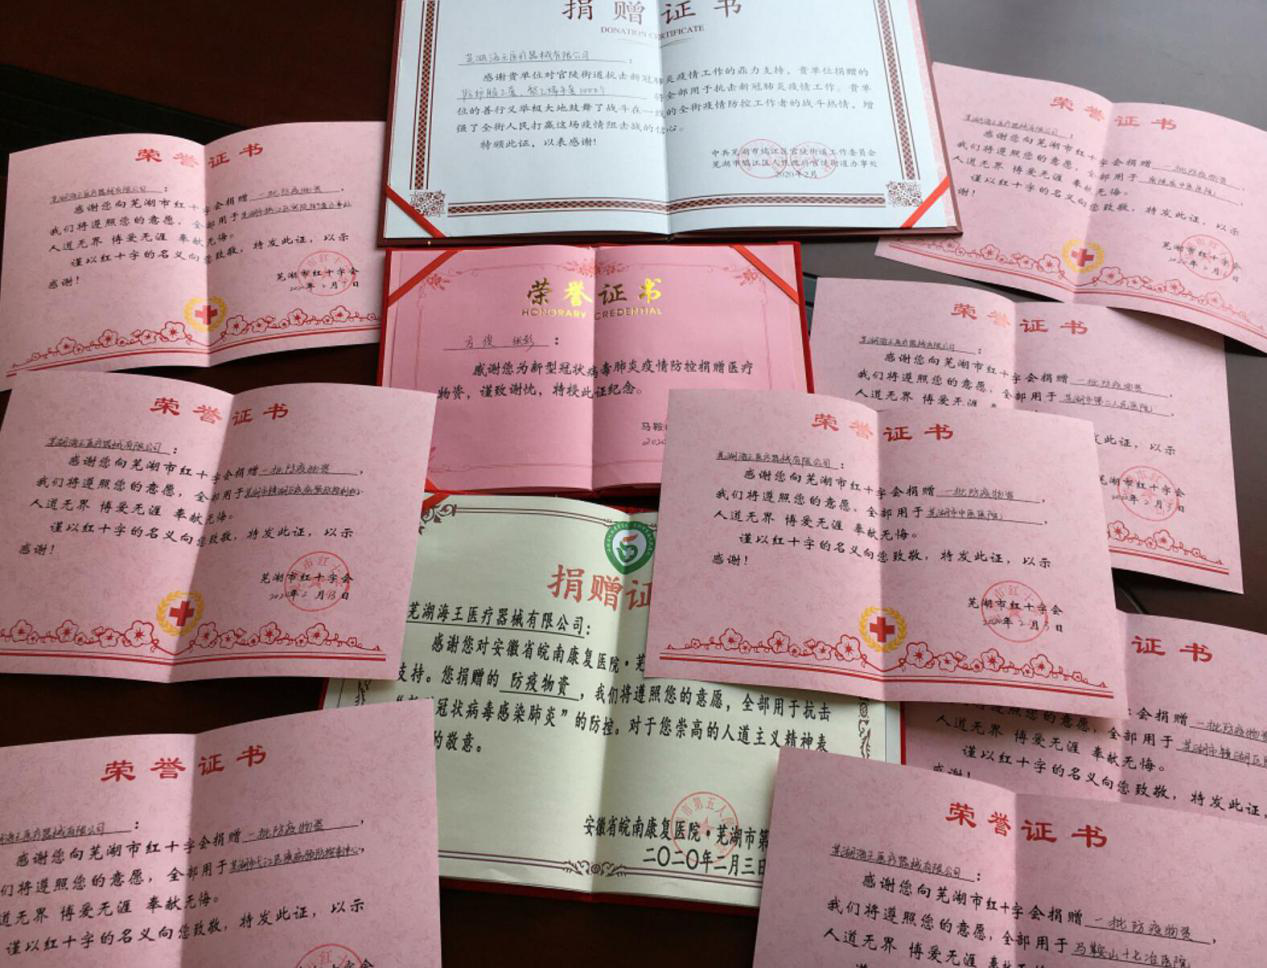 捐赠证书
DONATION CERTIFICATE
芜湖海王医疗器械有限公司：
感谢贵单位对官陡街道抗击新冠肺炎疫情工作的鼎力支持，贵单位捐赠的
全部用于抗击新冠肺炎疫情工作。贵单
位的善行义举极大地鼓舞了战斗在一线的全街疫情防控工作者的战斗热情，增
强了全街人民打赢这场疫情阻击战的信心。
特颁此证，以表感谢！
中共芜湖市鸠江区官陡街道工作委员会
芜湖市鸠江区人民政府官陡街道办事处
2020年2月
荣誉证书
芜湖海王医疗器械有限公司：
感谢您向芜湖市红十字会捐赠一批防疫物资，
我们将遵照您的意愿，全部用于
人道无界 博爱无涯 奉献无悔。
谨以红十字的名义向您致敬，特发此证，以示
感谢！
芜湖市红十字会
荣誉证书
芜湖海王医疗器械有限公司：
感谢您向芜湖市红十字会捐赠一批防疫物资，
我们将遵照您的意愿，全部用于
人道无界 博爱无涯 奉献无悔。
谨以红十字的名义向您致敬，特发此证，以示
感谢！
芜湖市红十字会
荣誉证书
HONORARY CREDENTIAL
：
感谢您为新型冠状病毒肺炎疫情防控捐赠医疗
物资，谨致谢忱，特授此证纪念。
马鞍
2020
荣誉证书
芜湖海王医疗器械有限公司：
感谢您向芜湖市红十字会捐赠一批防疫物资，
我们将遵照您的意愿，全部用于芜湖市第二人民医院
人道无界 博爱无涯
此证，以示
字会
荣誉证书
芜湖海王医疗器械有限公司：
感谢您向芜湖市红十字会捐赠一批防疫物资，
我们将遵照您的意愿，全部用于
人道无界 博爱无涯 奉献无悔。
谨以红十字的名义向您致敬，特发此证，以示
感谢！
芜湖市红十字会
2020年2月13日
荣誉证书
芜湖海王医疗器械有限公司：
感谢您向芜湖市红十字会捐赠一批防疫物资，
我们将遵照您的意愿，全部用于芜湖市中医医院，
人道无界 博爱无涯 奉献无悔。
谨以红十字的名义向您致敬，特发此证，以示
感谢！
芜湖市红十字会
捐赠证
芜湖海王医疗器械有限公司：
感谢您对安徽省皖南康复医院·芜
支持。您捐赠的防疫物资，我们将遵照您的意愿，全部用于抗击
冠状病毒感染肺炎”的防控。对于您崇高的人道主义精神表
的敬意。
安徽省皖南康复医院·芜湖市第
二〇二〇年二月三日
证书
字会捐赠一批防疫物资
们将遵照您的意愿，全部用于芜湖市镜湖区
人道无界 博爱无涯 奉献无悔。
谨以红十字的名义向您致敬，特发此证，
感谢！
荣誉证书
芜湖海王医疗器械有限公司：
感谢您向芜湖市红十字会捐赠一批防疫物资，
们将遵照您的意愿，全部用于
道无界 博爱无涯 奉献无悔。
谨以红十字的名义向您致敬，特发此证，以示
芜湖市红十字会
荣誉证书
芜湖海王医疗器械有限公司：
感谢您向芜湖市红十字会捐赠一批防疫物资，
我们将遵照您的意愿，全部用于马鞍山十七冶医院
人道无界 博爱无涯 奉献无悔。
谨以红十字的名义向您致敬，特发此证，以示